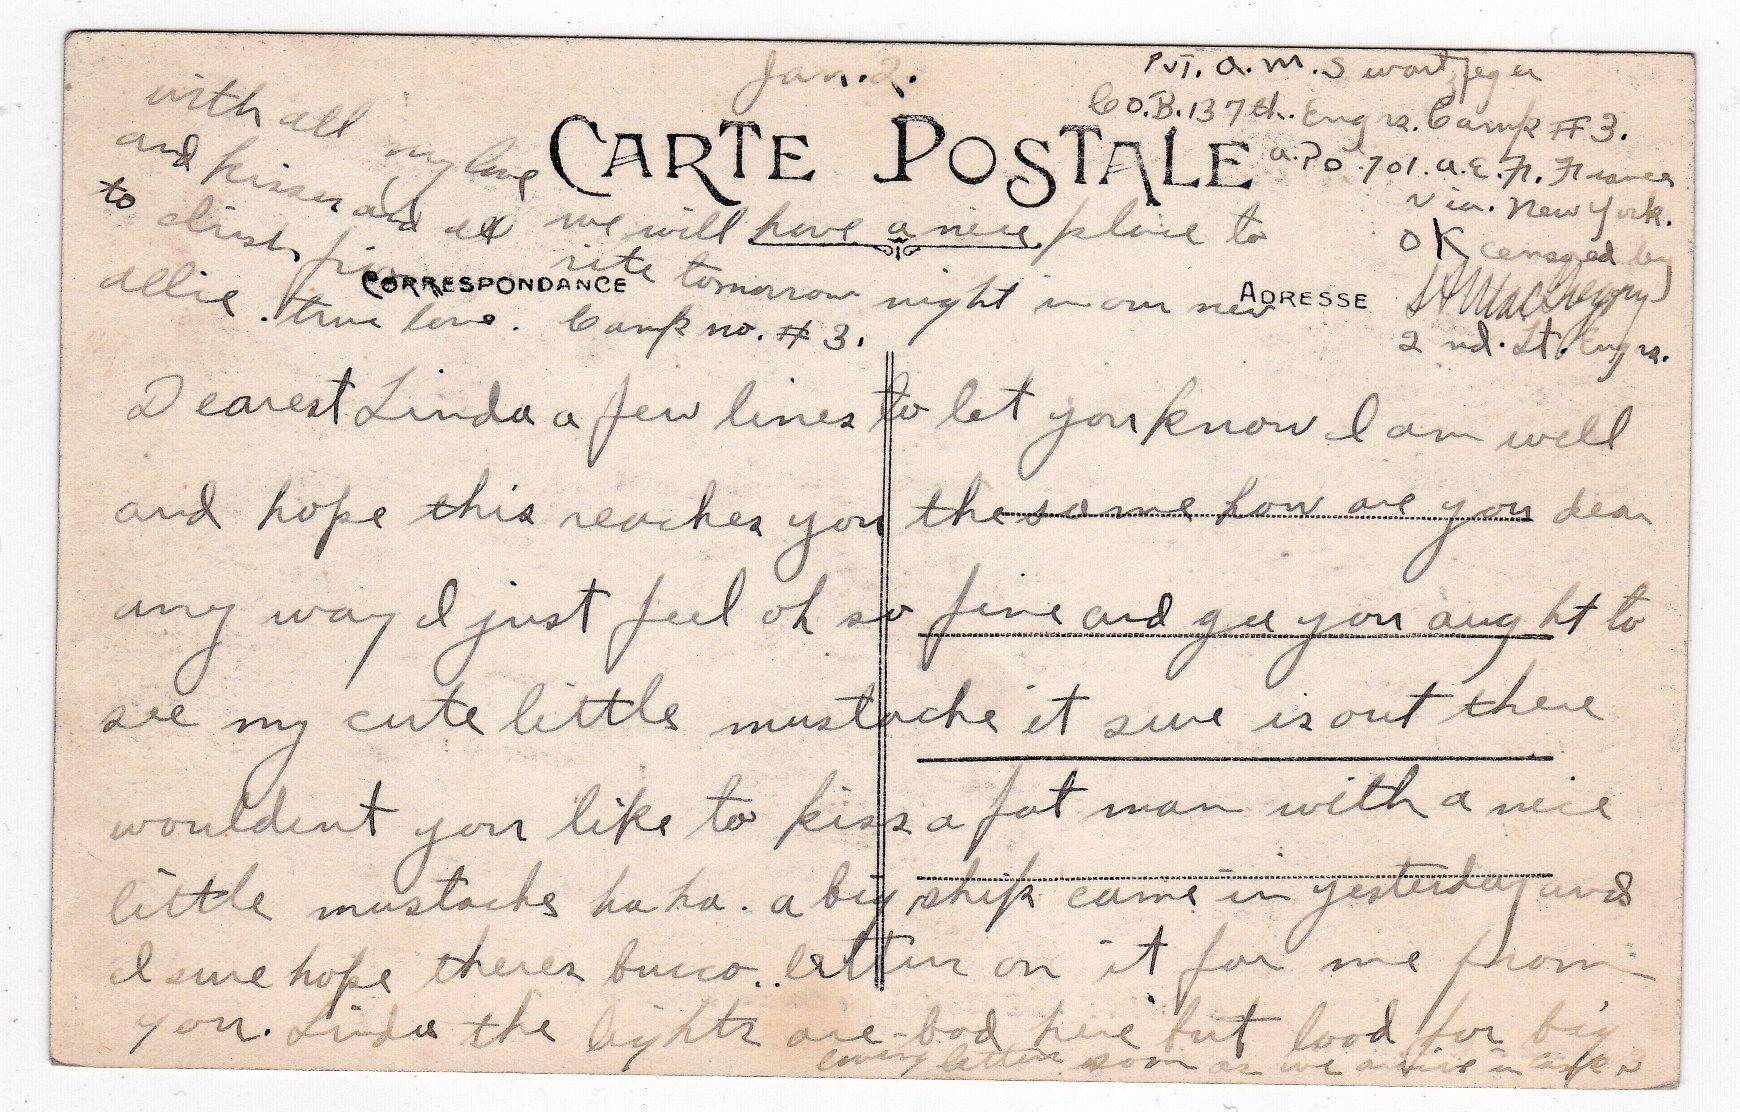 Jan. 2.
Pvt. A. M. Swartzfeger
Co. B. 137th. Engrs. Camp # 3.
a.P.O. 701. a.E.F. France
via. New York.
OK censored by
MacGregory
2 nd. Lt. Engrs.
CARTE POSTALE
CORRESPONDANCE
ADRESSE
Dearest Linda a few lines to let you know I am well
and hope this reaches you the same how are you dear
any way I just feel oh so fine and gee you aught to
see my cute little mustache it sure is out there
wouldent you like to kiss a fat man with a nice
little mustache ha ha. a big ship came in yesterday and
I sure hope theres letter on it for me from
you. Linda the lights are bad here but look for big
loving letter soon as we arrive in camp
we will have a nice place to
rite tomorrow night in our new
Camp no. # 3.
with all my love
and kisses and all
to
allie. true love.